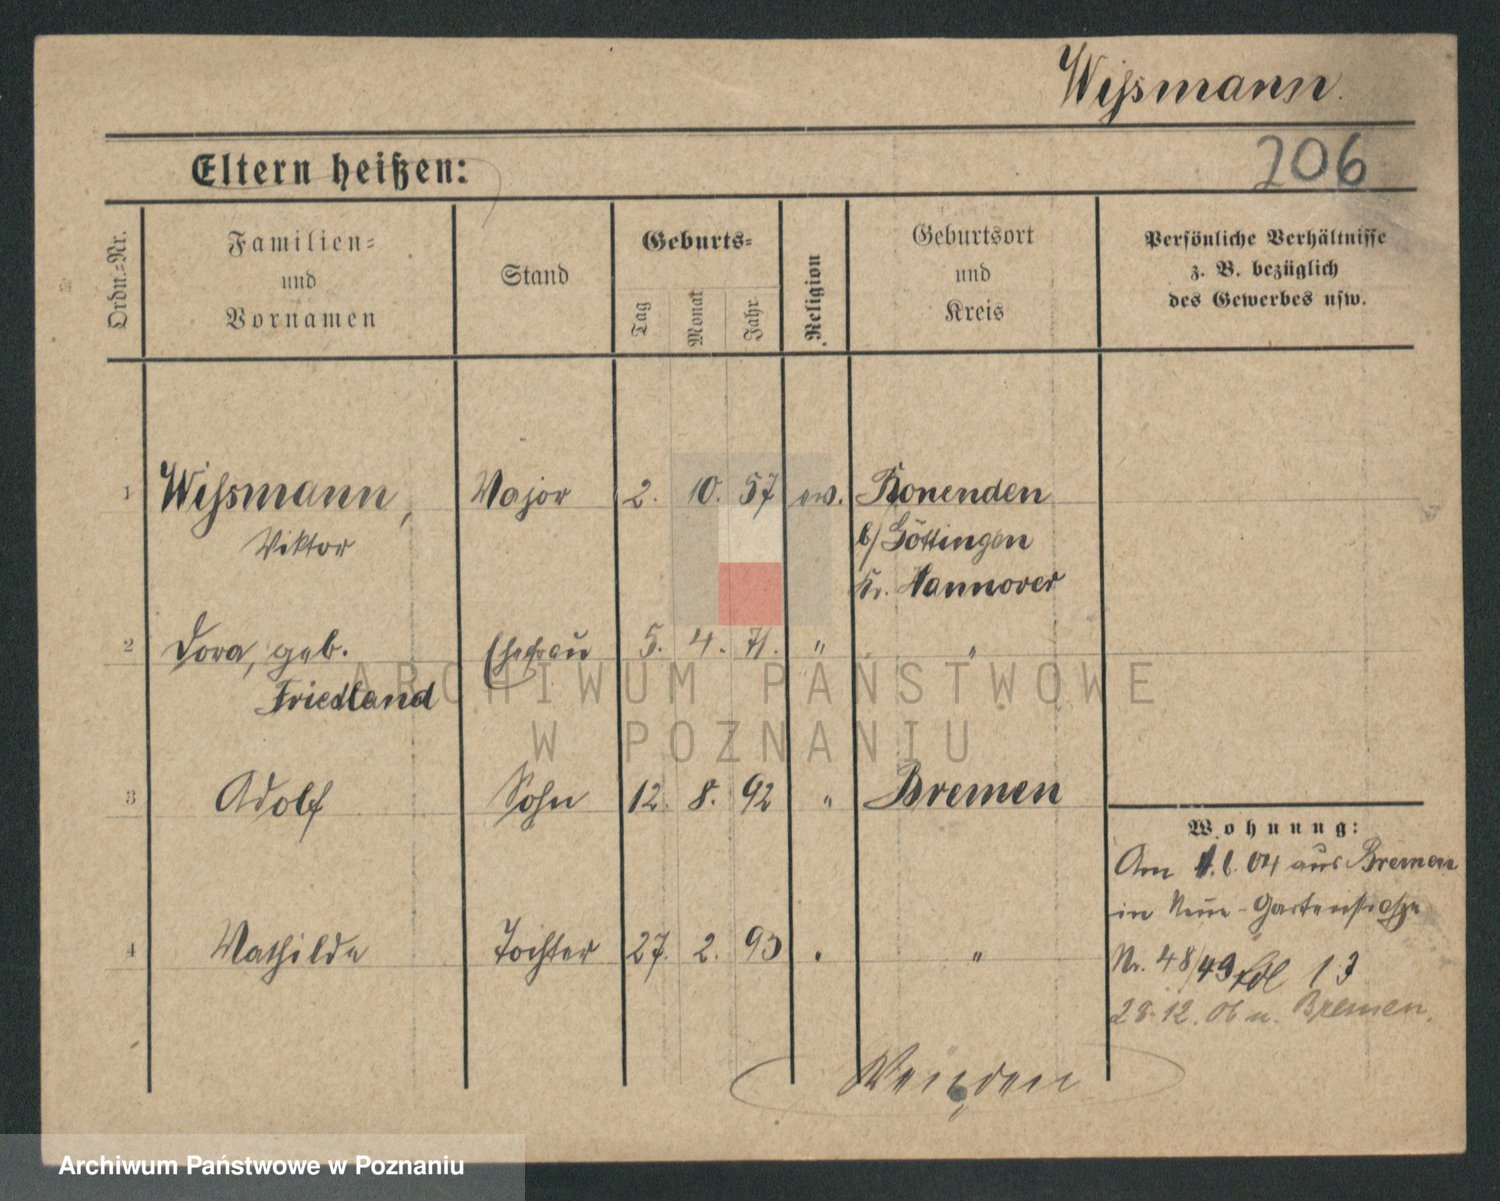 Wissmann.
206
Eltern heißen:
Ordn.-Nr.
Familien-
und
Vornamen
Stand
Geburts-
Tag
Monat
Jahr
Religion
Geburtsort
und
Kreis
Persönliche Verhältnisse
z. B. bezüglich
des Gewerbes usw.
1 Wissmann, Major 2. 10. 57 ev. Bonenden
Viktor b/ Göttingen
Kr. Hannover
2 Dora, geb. Ehefrau 5. 4. 71. " "
Friedland
3 Adolf Sohn 12. 8. 92 " Bremen
4 Mathilde Tochter 27. 2. 93 " "
Wohnung:
Am 1. 04 aus Bremen
in Neue-Gartenstraße
Nr. 48/49
28.12.06 n. Bremen.
Wenden
ARCHIWUM PAŃSTWOWE
W POZNANIU
Archiwum Państwowe w Poznaniu